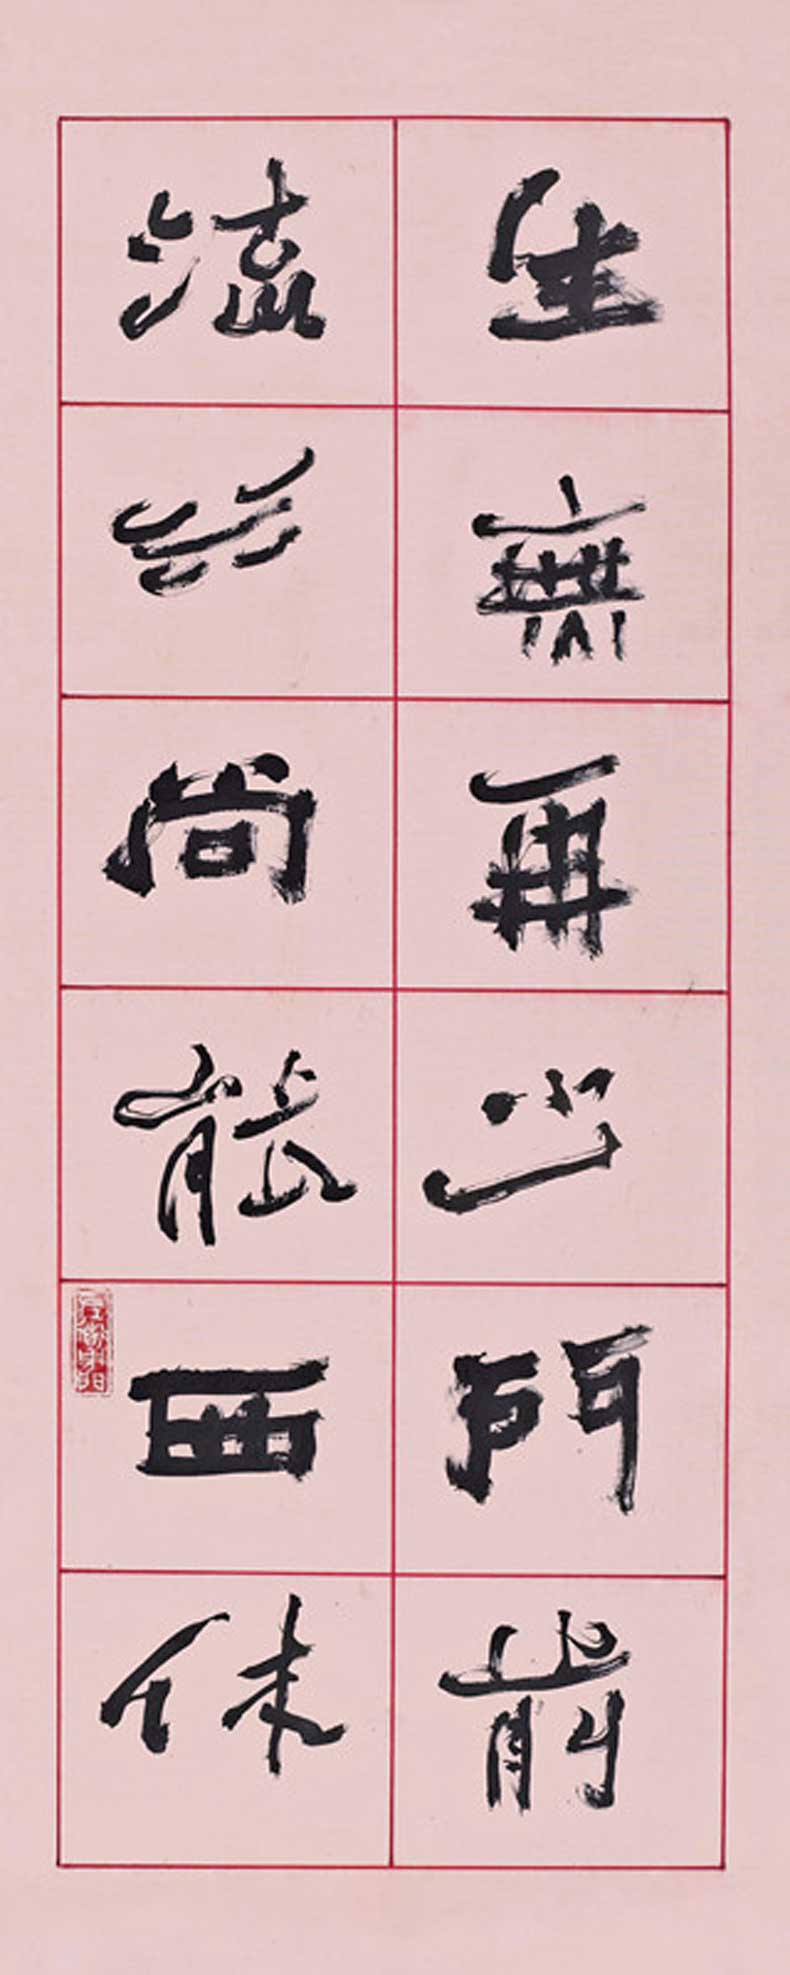 生無再少門前
流水尚能西休